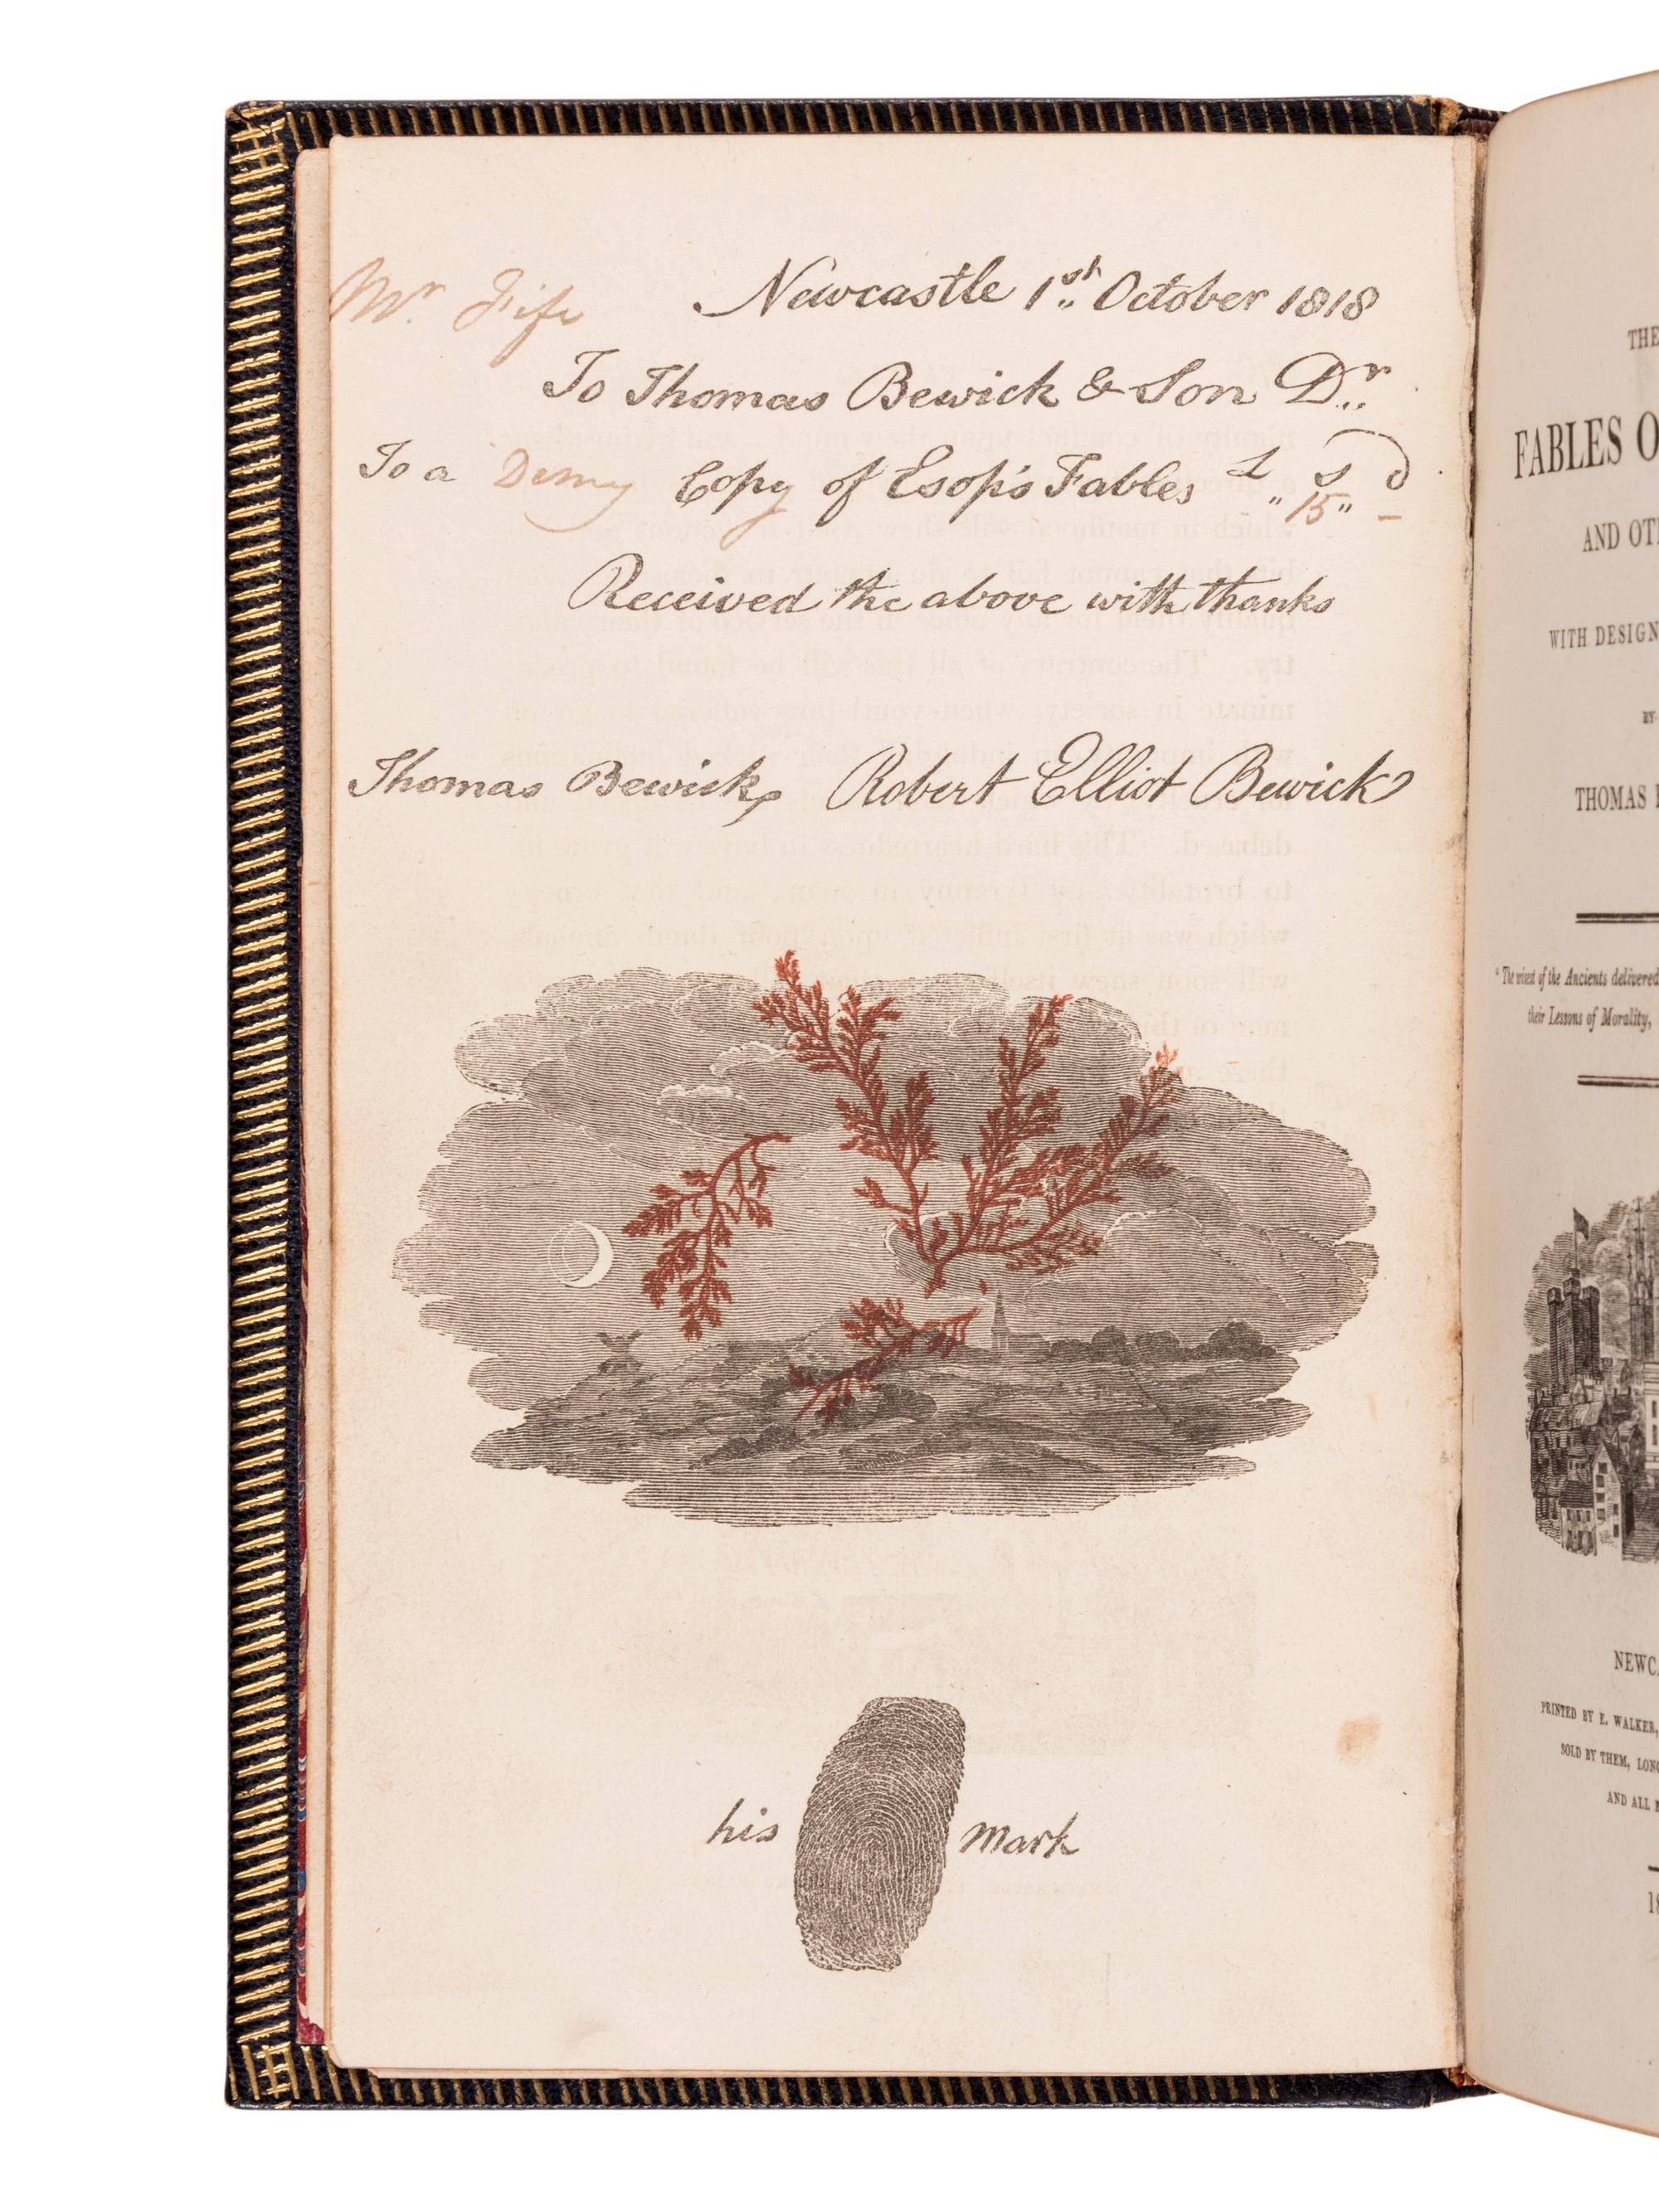 Mr. Fife
Newcastle 1st October 1818
To Thomas Bewick & Son Dr
To a Demy Copy of Esop's Fables £ s d
" 15 " -
Received the above with thanks
Thomas Bewick, Robert Elliot Bewick
his mark
THE
FABLES O
AND OT
WITH DESIGN
BY
THOMAS
"The wisest of the Ancients delivered
their Lessons of Morality,
NEWC
PRINTED BY E. WALKER,
SOLD BY THEM, LON
AND ALL
18